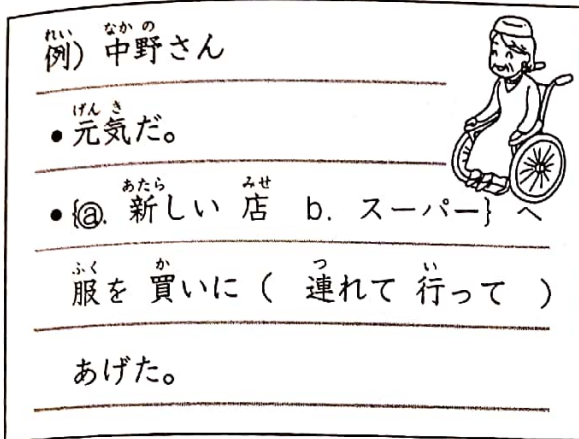 例) 中野さん
• 元気だ。
• {ⓐ. 新しい 店　b. スーパー} へ
服を 買いに ( 連れて 行って )
あげた。